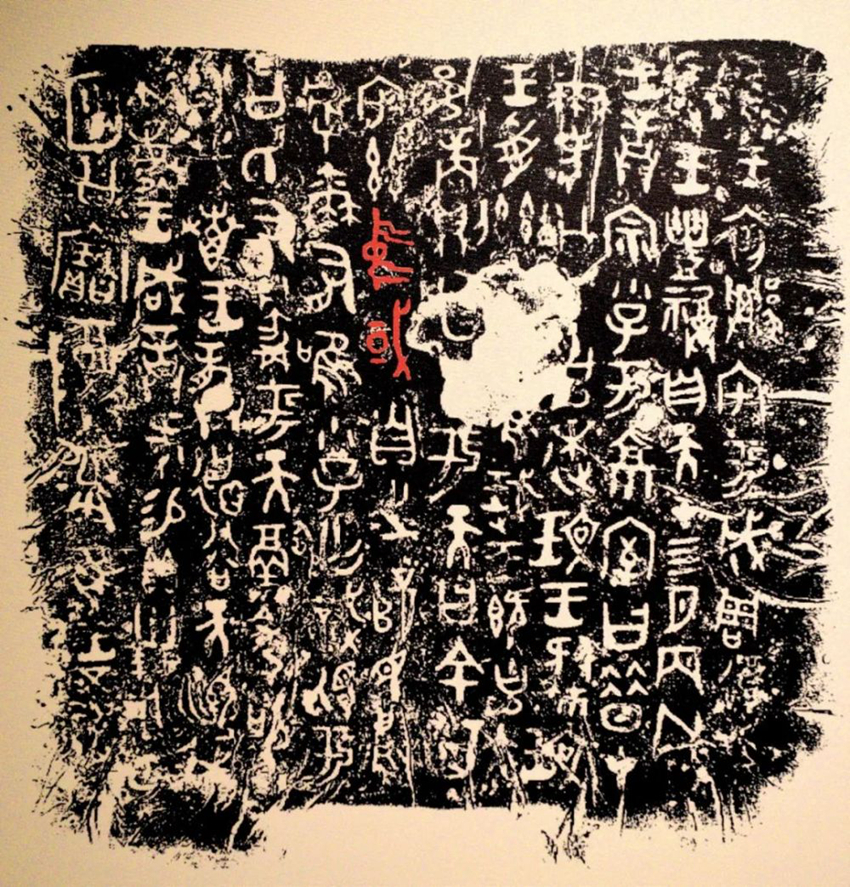 隹王初宅于成周復爯
珷王豊福自天才四月丙戌
王誥宗小子于京室曰昔才
爾考公氏克逨玟王肆玟
王受茲珷王既克大
邑商則廷告于天曰余其
宅茲中或自之乂民烏
虖爾有唯小子亡識視于
公氏有爵于天徹令敬
享哉叀王龏德谷天順我
不敏王咸誥何易貝卅朋用乍
公寶尊彝隹王五祀